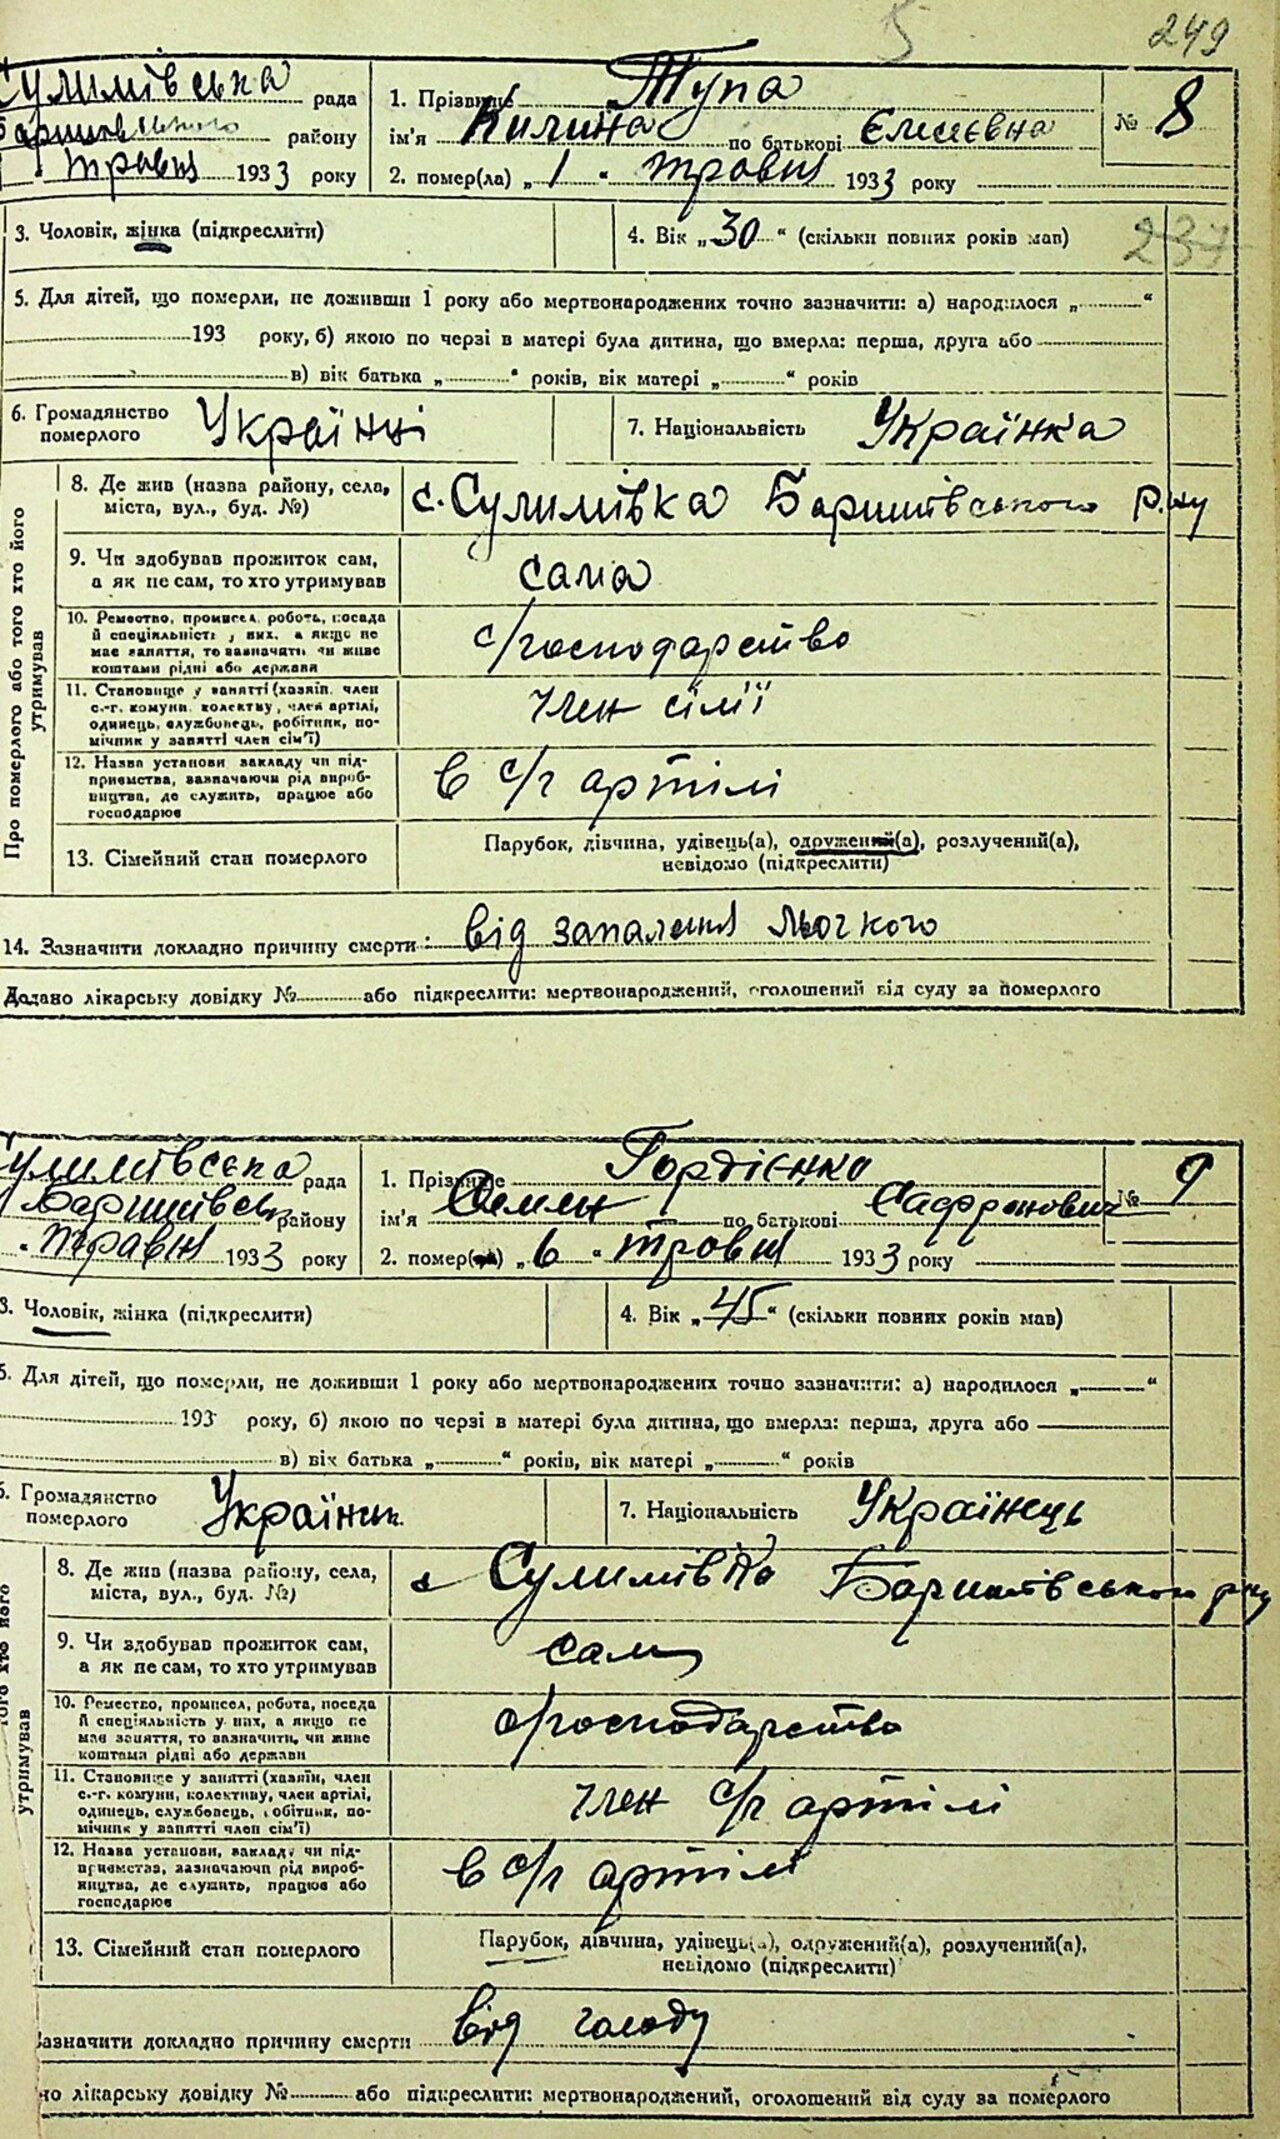 5 249
Сулимівська рада
Баришівського району
травня 1933 року
1. Прізвище Тупа
ім'я Килина по батькові Єлисеєвна
2. помер(ла) „1“ травня 1933 року
№ 8
3. Чоловік, жінка (підкреслити)
4. Вік „30“ (скільки повних років мав)
237
5. Для дітей, що померли, не доживши 1 року або мертвонароджених точно зазначити: а) народилося „ “
193 року, б) якою по черзі в матері була дитина, що вмерла: перша, друга або
в) вік батька „ “ років, вік матері „ “ років
6. Громадянство
померлого
Українці
7. Національність Українка
Про померлого або того хто його
утримував
8. Де жив (назва району, села,
міста, вул., буд. №)
с. Сулимівка Баришівського р.ну
9. Чи здобував прожиток сам,
а як не сам, то хто утримував
сама
10. Ремество, промисел, робота, посада
й спеціяльність у них, а якщо не
має заняття, то зазначати чи живе
коштами рідні або держави
с/господарство
11. Становище у занятті (хазяїн, член
с.-г. комуни, колективу, член артілі,
одинець, службовець, робітник, по-
мічник у занятті член сім'ї)
член сімї
12. Назва установи закладу чи під-
приємства, зазначаючи рід вироб-
ництва, де служить, працює або
господарює
в с/г артілі
13. Сімейний стан померлого
Парубок, дівчина, удівець(а), одружений(а), розлучений(а),
невідомо (підкреслити)
14. Зазначити докладно причину смерти: від запалення льочкого
Додано лікарську довідку № або підкреслити: мертвонароджений, оголошений від суду за померлого
Сулимівська рада
Баришівськ району
травня 1933 року
1. Прізвище Гордієнко
ім'я Семен по батькові Сафронович
2. помер(ла) „6“ травня 1933 року
№ 9
3. Чоловік, жінка (підкреслити)
4. Вік „45“ (скільки повних років мав)
5. Для дітей, що померли, не доживши 1 року або мертвонароджених точно зазначити: а) народилося „ “
193 року, б) якою по черзі в матері була дитина, що вмерла: перша, друга або
в) вік батька „ “ років, вік матері „ “ років
6. Громадянство
померлого
7. Національність Українець
того хто його
утримував
8. Де жив (назва району, села,
міста, вул., буд. №)
с Сулимівка Баришівського рну
9. Чи здобував прожиток сам,
а як не сам, то хто утримував
сам
10. Ремество, промисел, робота, посада
й спеціяльність у них, а якщо не
має заняття, то зазначити, чи живе
коштами рідні або держави
с/господарство
11. Становище у занятті (хазяїн, член
с.-г. комуни, колективу, член артілі,
одинець, службовець, робітник, по-
мічник у занятті член сім'ї)
член с/г артілі
12. Назва установи, закладу чи під-
приємства, зазначаючи рід вироб-
ництва, де служить, працює або
господарює
в с/г артілі
13. Сімейний стан померлого
Парубок, дівчина, удівець(а), одружений(а), розлучений(а),
невідомо (підкреслити)
Зазначити докладно причину смерти від голоду
но лікарську довідку № або підкреслити: мертвонароджений, оголошений від суду за померлого